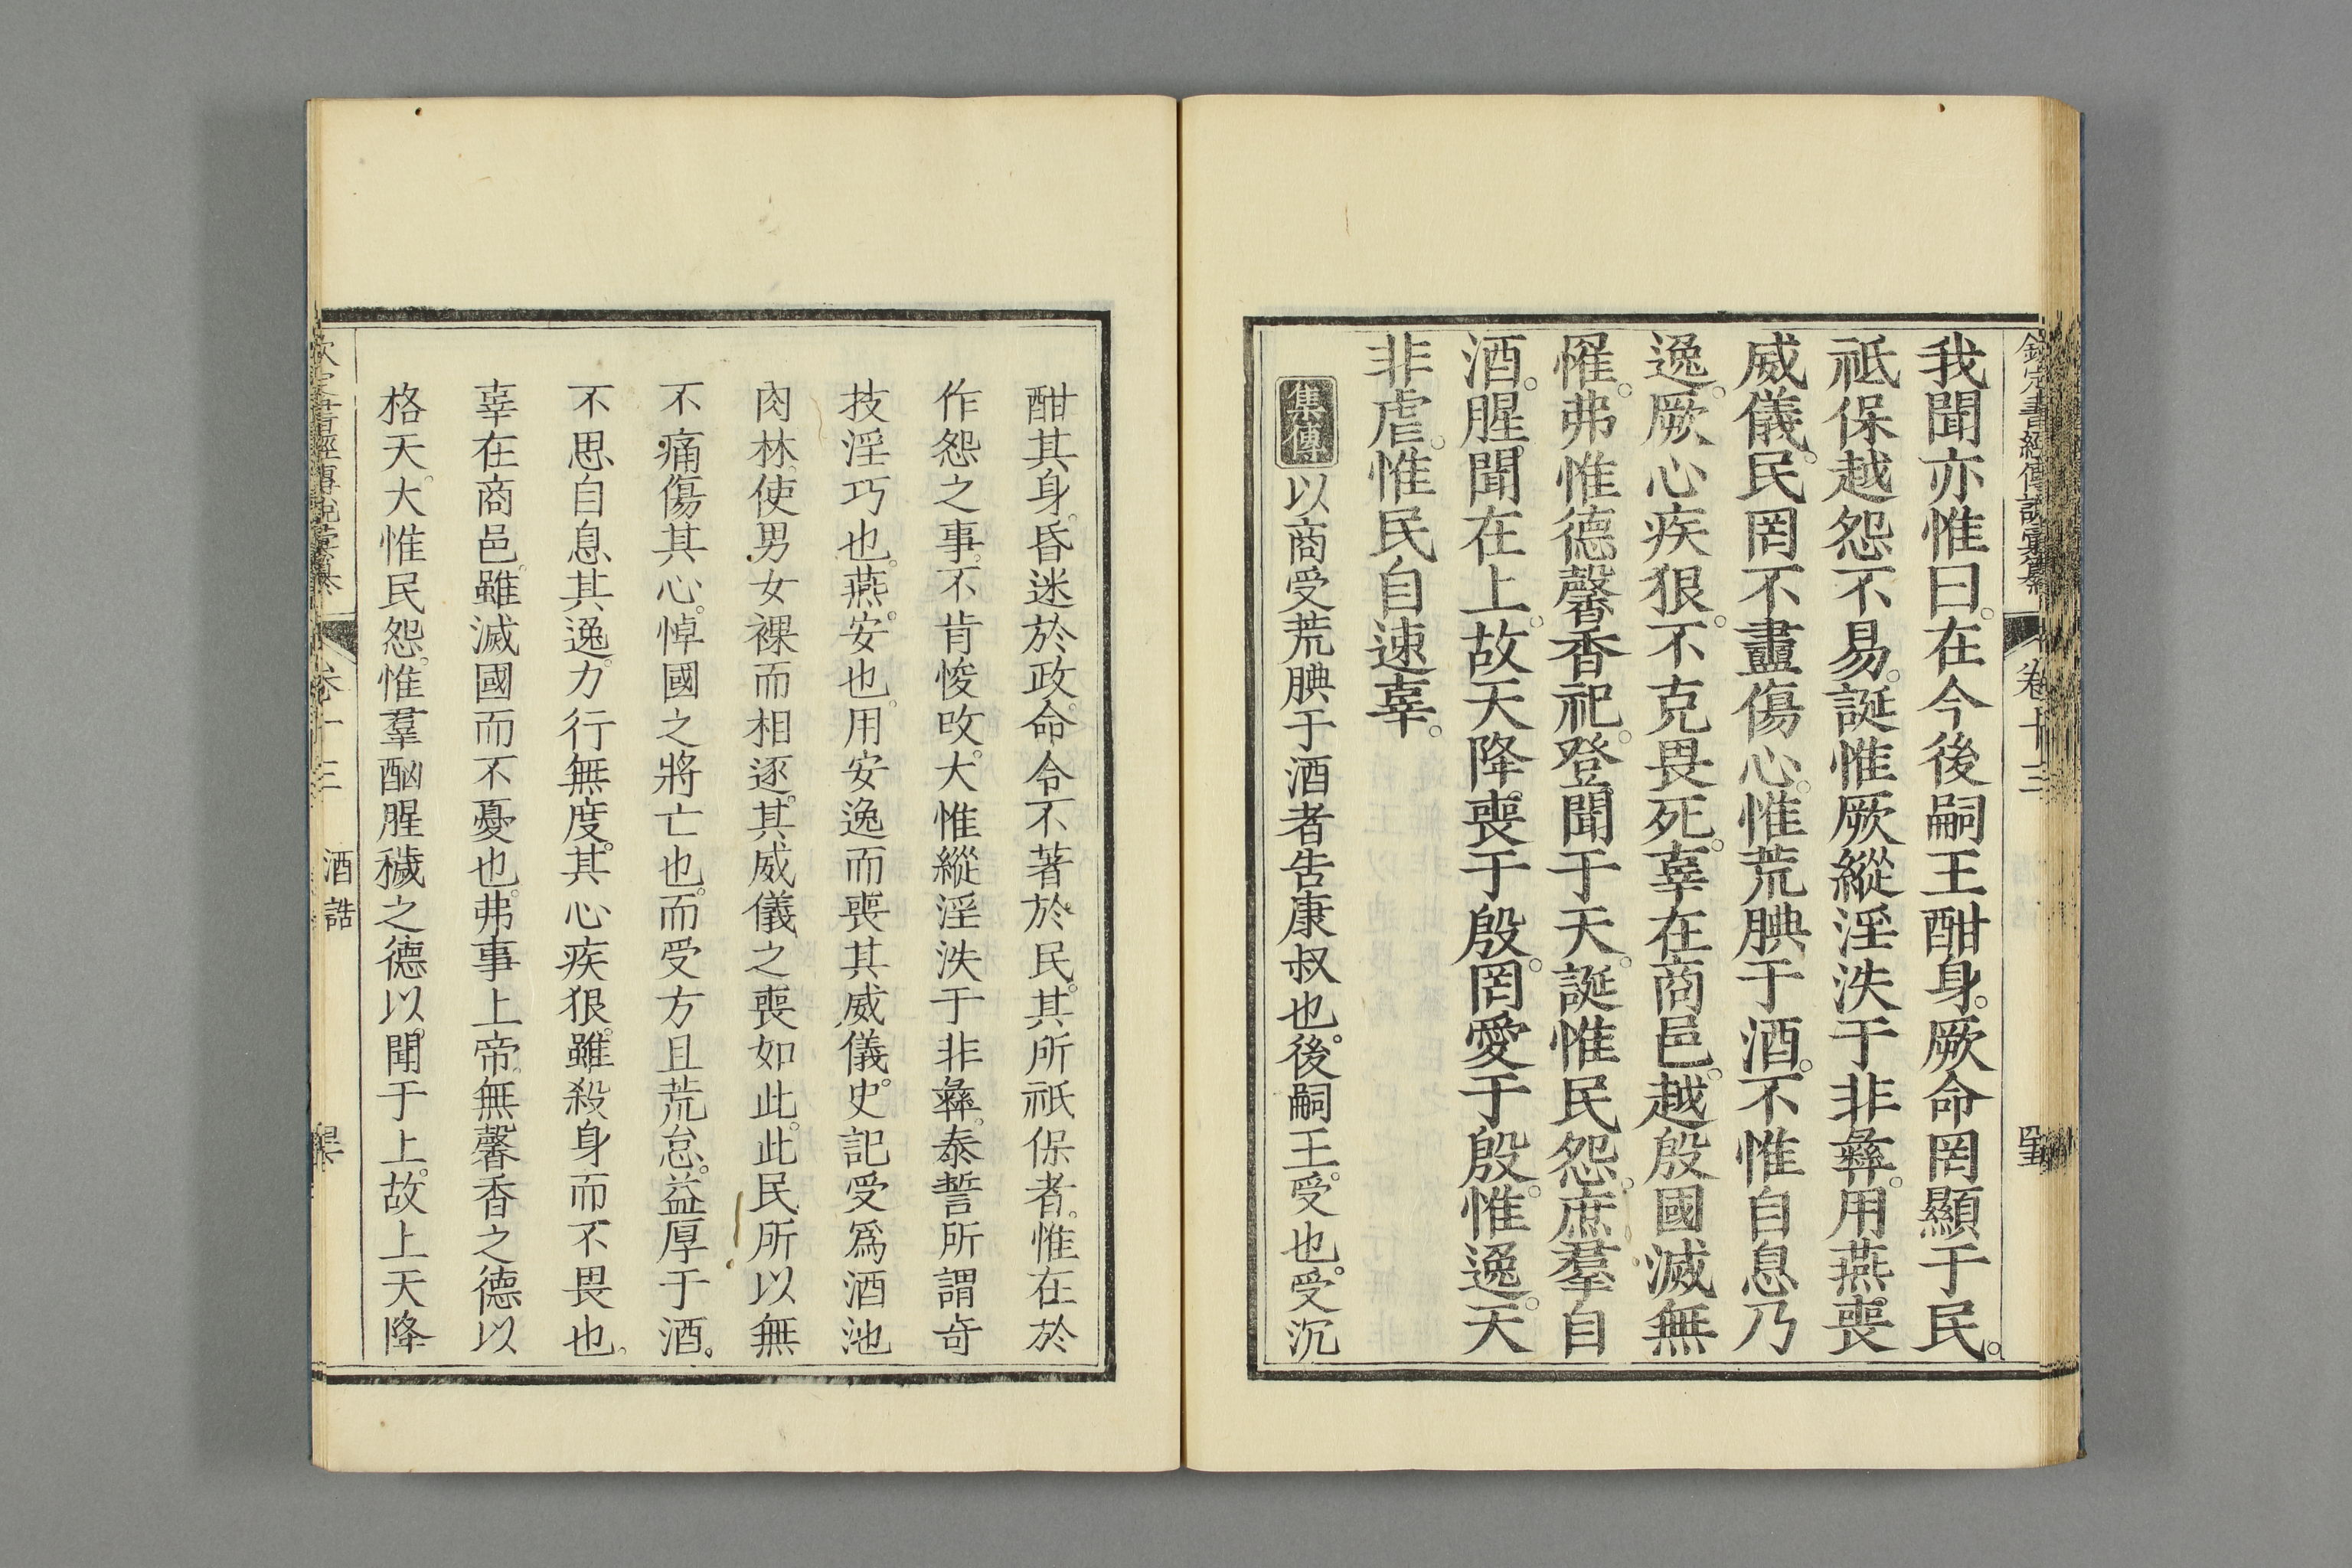 欽定書經傳說彙纂 卷十三
我聞亦惟曰。在今後嗣王酣身。厥命罔顯于民。
祗保越怨不易。誕惟厥縱淫泆于非彝。用燕喪
威儀。民罔不衋傷心。惟荒腆于酒。不惟自息乃
逸。厥心疾狠。不克畏死。辜在商邑。越殷國滅無
罹。弗惟德馨香祀。登聞于天。誕惟民怨。庶羣自
酒。腥聞在上。故天降喪于殷。罔愛于殷。惟逸。天
非虐。惟民自速辜。
集傳 以商受荒腆于酒者告康叔也。後嗣王。受也。受沉
酣其身。昏迷於政。命令不著於民。其所祇保者。惟在於
作怨之事。不肯悛攺。大惟縱淫泆于非彝。泰誓所謂奇
技淫巧也。燕。安也。用安逸而喪其威儀。史記受爲酒池
肉林。使男女裸而相逐。其威儀之喪如此。此民所以無
不痛傷其心。悼國之將亡也。而受方且荒怠。益厚于酒。
不思自息其逸。力行無度。其心疾狠。雖殺身而不畏也。
辜在商邑。雖滅國而不憂也。弗事上帝。無馨香之德以
格天。大惟民怨。惟羣酗腥穢之德以。聞于上。故上天降
卷十三 酒誥